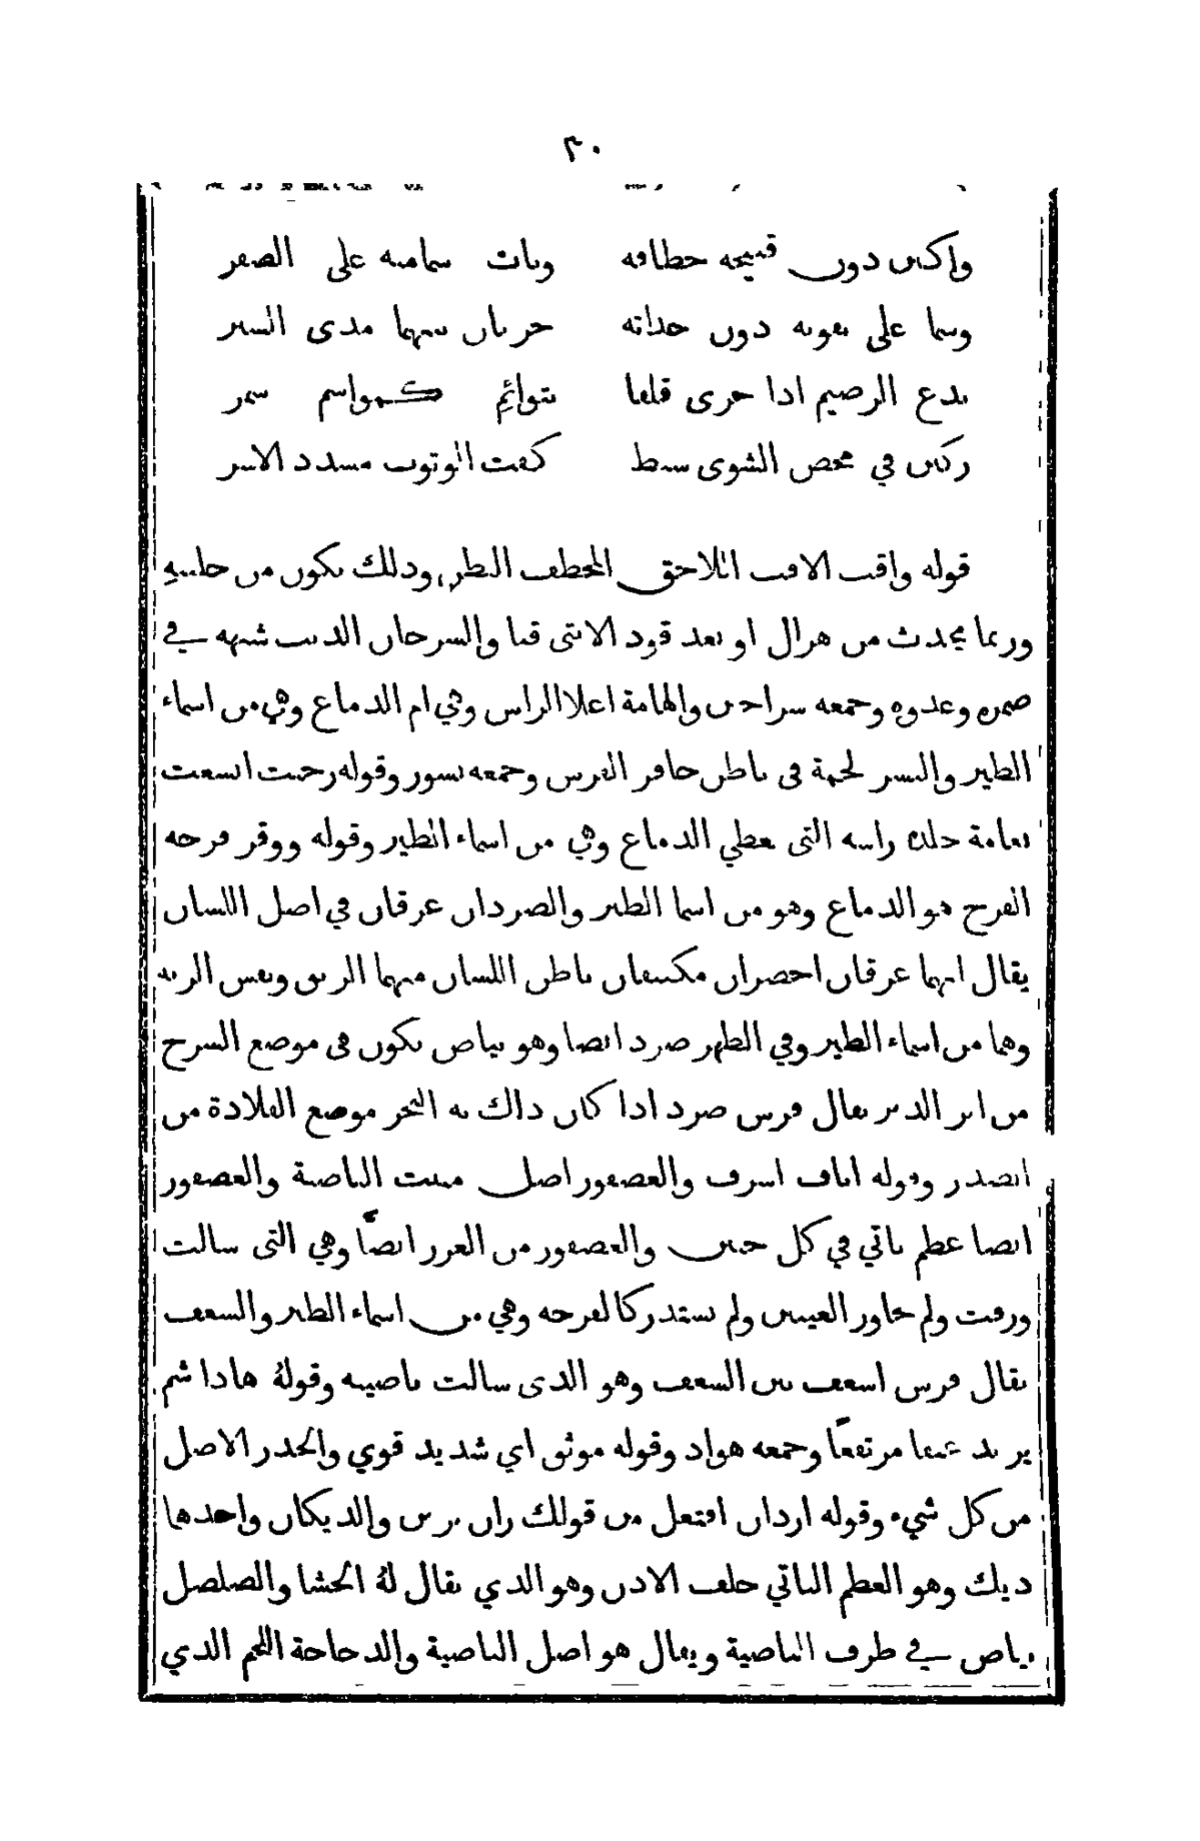 ٣٠
واكنن دون قبيحه خطافه ونات سمامه على الصقر
وسما على نقونه دون حداته خربان بينهما مدى الشبر
يدع الرضيم اذا جرى فلقا بتوائم كمواسم سمر
ركبن في محض الشوى سبط كفت الوثوب مشدد الاسر
قوله واقب الاقب اللاحق المخطف البطن وذلك يكون من خلقه
وربما يحدث من هزال او بعد قود الانثى قبا والسرحان الذيب شبهه في
ضمره وعدوه وجمعه سراحين والهامة اعلا الراس وهي ام الدماغ وهي من اسماء
الطير والنسر لحمة في باطن حافر الفرس وجمعه نسور وقوله رحبت اتسعت
نعامة جلدة راسه التي تغطي الدماغ وهي من اسماء الطير وقوله ووفر فرخه
الفرخ هو الدماغ وهو من اسما الطير والصردان عرقان في اصل اللسان
يقال انهما عرقان اخضران مكتنفان باطن اللسان منهما الريق ونفس الريه
وهما من اسماء الطير وفي الظهر صرد ايضا وهو بياض يكون في موضع السرج
من اثر الدبر يقال فرس صرد اذا كان ذاك به النحر موضع القلادة من
الصدر وقوله اناف اشرف والعصفور اصل منبت الناصية والعصفور
ايضا عظم ناتي في كل جبين والعصفور من الغرر ايضًا وهي التي سالت
ورقت ولم تجاوز العينين ولم تستدر كالقرحه وهي من اسماء الطير والسعف
يقال فرس اسعف بين السعف وهو الذي سالت ناصيته وقولهُ هادا شم
يريد عنقا مرتفعًا وجمعه هواد وقوله موثق اي شديد قوي والجذر الاصل
من كل شيء وقوله ازدان افتعل من قولك زان يزين والديكان واحدها
ديك وهو العظم الناتي خلف الاذن وهو الذي يقال لهُ الخشا والصلصل
بياض في طرف الناصية ويقال هو اصل الناصية والدجاجة اللحم الذي